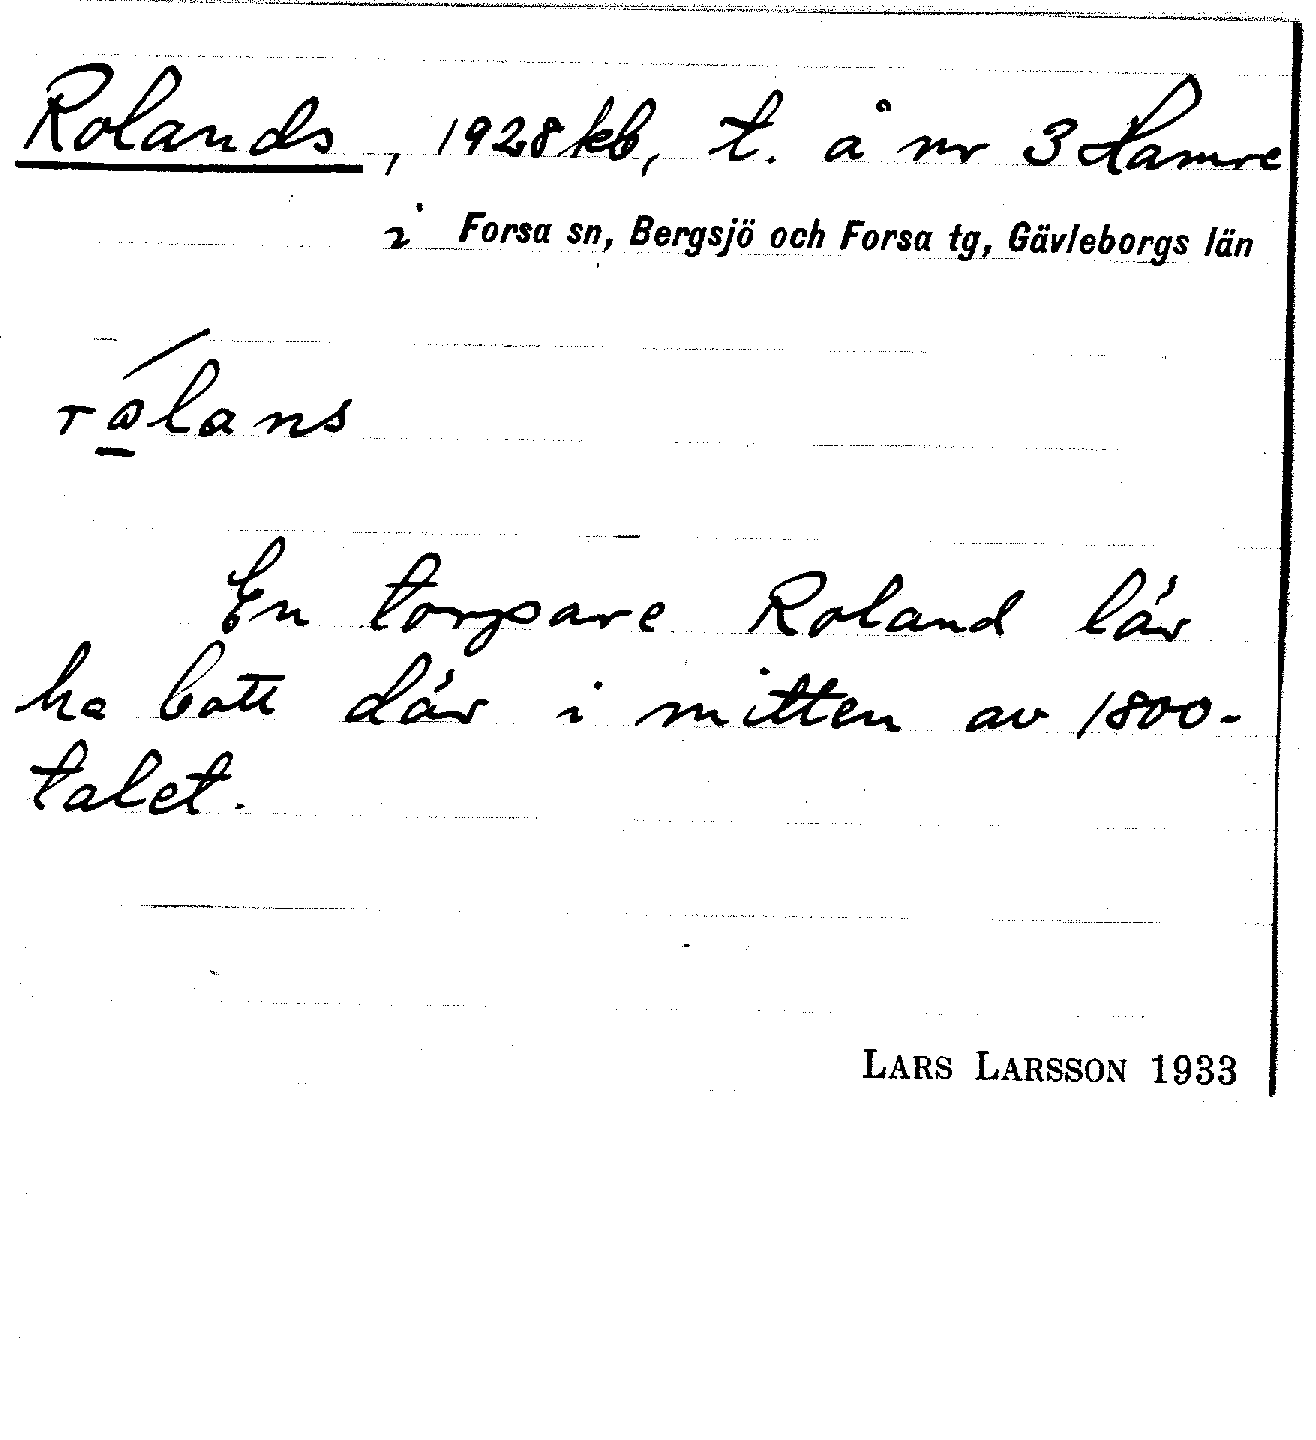 Rolands, 1928 kb, t. å nr 3 Hamre
i Forsa sn, Bergsjö och Forsa tg, Gävleborgs län
rolans
En torpare Roland lär
ha bott där i mitten av 1800-
talet.
LARS LARSSON 1933